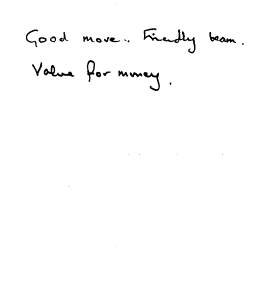 Good move.. Friendly team.
Value for money.